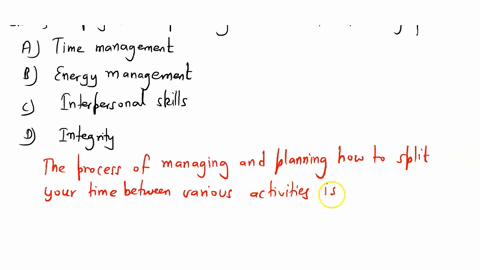 A) Time management
B) Energy management
C) Interpersonal skills
D) Integrity
The process of managing and planning how to split
your time between various activities is